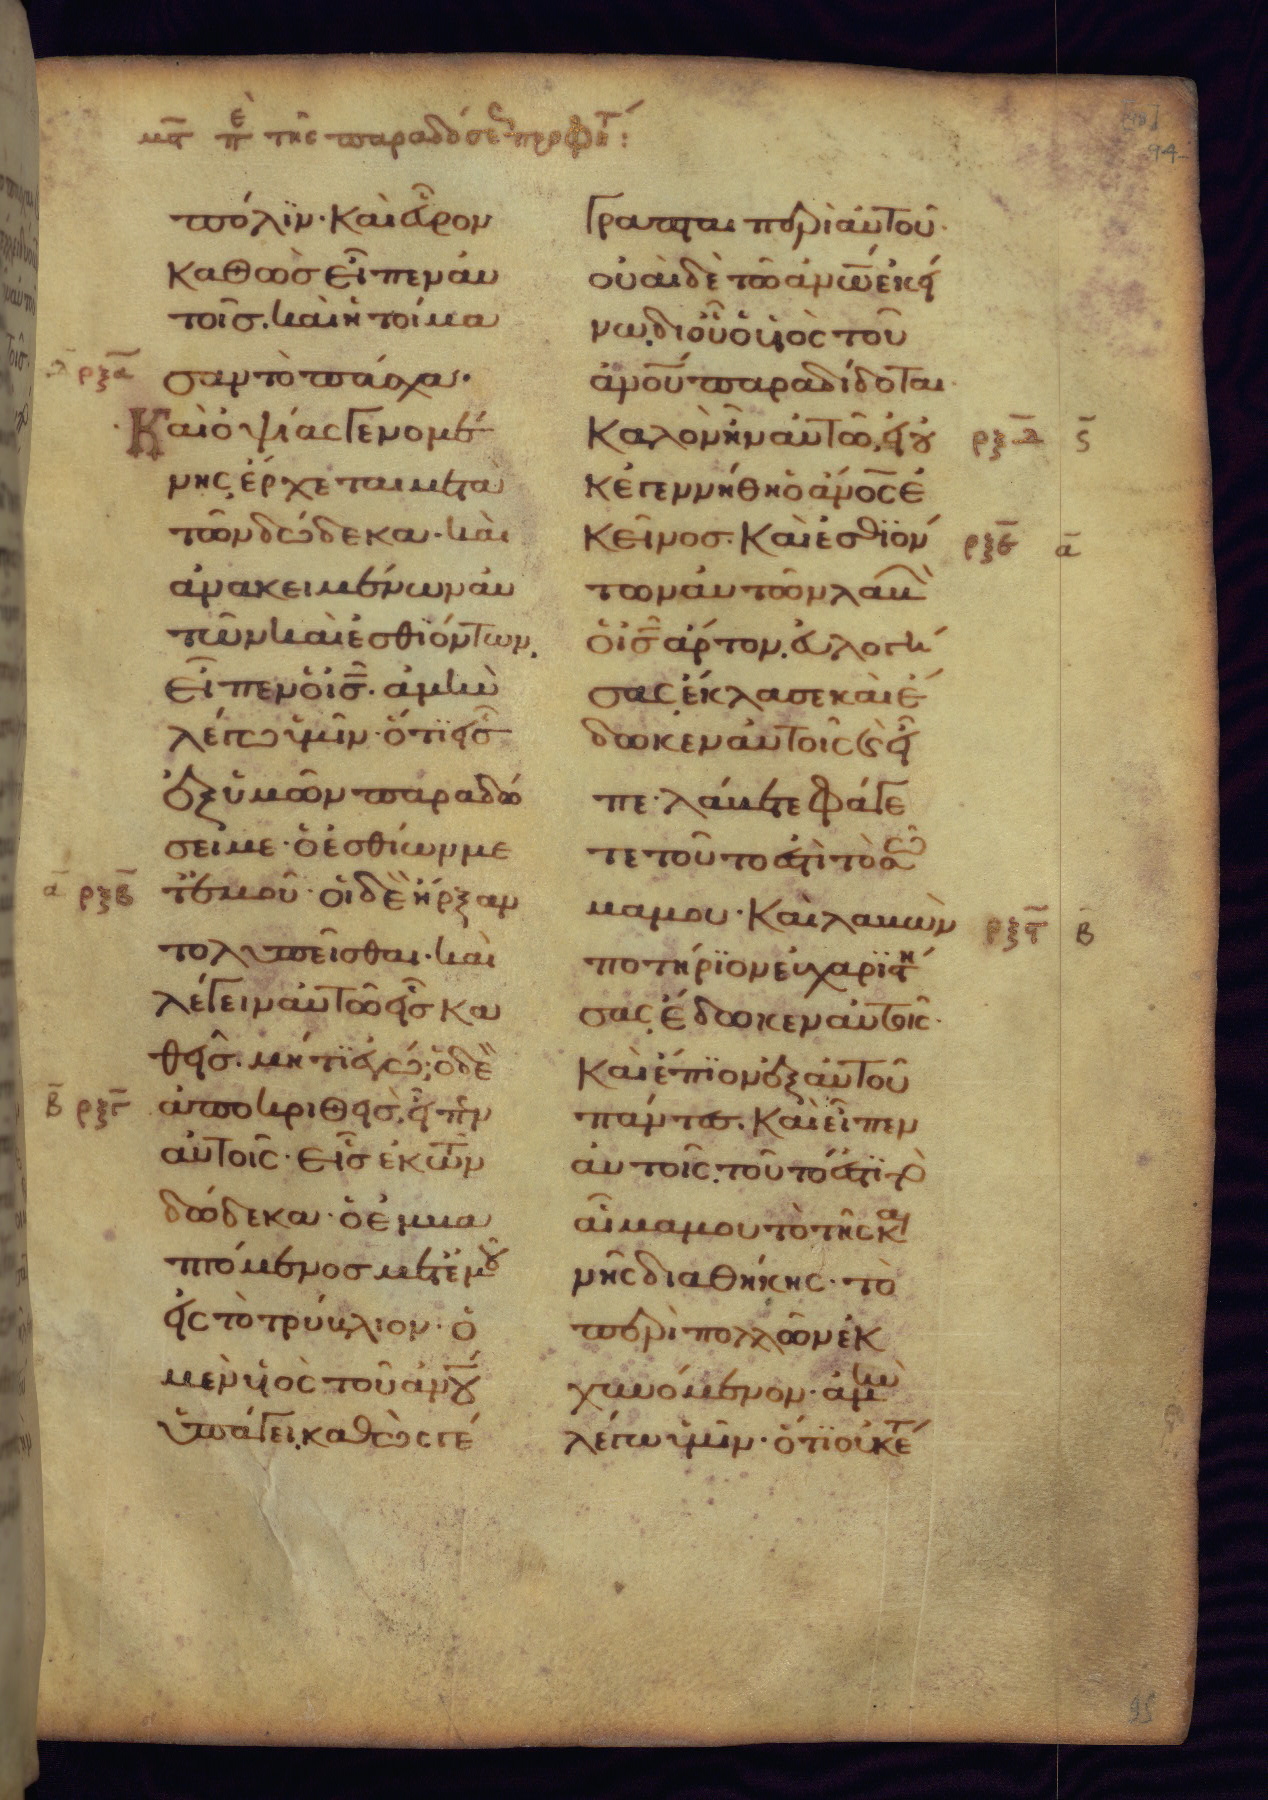 μϛ πε τῆς παραδόσεως προφητ:
πόλιν· καὶ εὗρον
καθὼσ εἶπεν αὐ
τοῖσ. καὶ ἡτοίμα
ρξα σαν τὸ πάσχα·
Καὶ ὀψίας γενομέ
νης, ἔρχεται μετὰ
τῶν δώδεκα· καὶ
ἀνακειμένων αὐ
τῶν καὶ ἐσθϊόντων,
εἶπεν ὁ ἰς̅. ἀμὴν
λέγω ὑμῖν· ὅτϊ εἷσ
ἐξ ὑμῶν παραδώ
σει με· ὁ ἐσθίων με
α ρξβ τ ἐμοῦ· οἱ δὲ ἤρξαν
το λυπεῖσθαι· καὶ
λέγειν αὐτῶ εἷσ κα
θεῖσ. μήτϊ ἐγώ; ὁ δὲ
β ρξγ ἀποκριθεὶσ, εἶπεν
αὐτοῖς· εἷσ ἐκ τῶν
δώδεκα· ὁ ἐμβα
πτόμενοσ μετ ἐμοῦ
εἰς τὸ τρύβλιον· ὁ
μὲν υἱὸς τοῦ ἀνου̅
ὑπάγει, καθὼς γέ
γραπται περὶ αὐτοῦ·
οὐαὶ δὲ τῶ ἀνω̅ ἐκεί
νω, δι οὗ ὁ υἱὸς τοῦ
ἀνου̅ παραδίδοται·
καλὸν ἦν αὐτῶ, εἰ οὐ ρξδ ϛ
κ ἐγεννήθη ὁ ἄνος̅ ἐ
κεῖνοσ. Καὶ ἐσθϊόν ρξε α
των αὐτῶν λαβὼν
ὁ ἰς̅ ἄρτον, εὐλογή
σας, ἔκλασε καὶ ἔ
δωκεν αὐτοῖς καὶ εἶ
πε· λάβετε φάγε
τε τοῦτο ἐστὶ τὸ σῶ
μα μου· Καὶ λαβὼν ρξϛ β
ποτήρϊον εὐχαρϊστή
σας, ἔδωκεν αὐτοῖς·
Καὶ ἔπϊον ἐξ αὐτοῦ
πάντες. Καὶ εἶπεν
αὐτοῖς, τοῦτό ἐστϊ τὸ
αἷμα μου τὸ τῆς και
νῆς διαθήκης· τὸ
περὶ πολλῶν ἐκ
χυνόμενον· ἀμὴν
λέγω ὑμῖν· ὅτϊ οὐκέτ